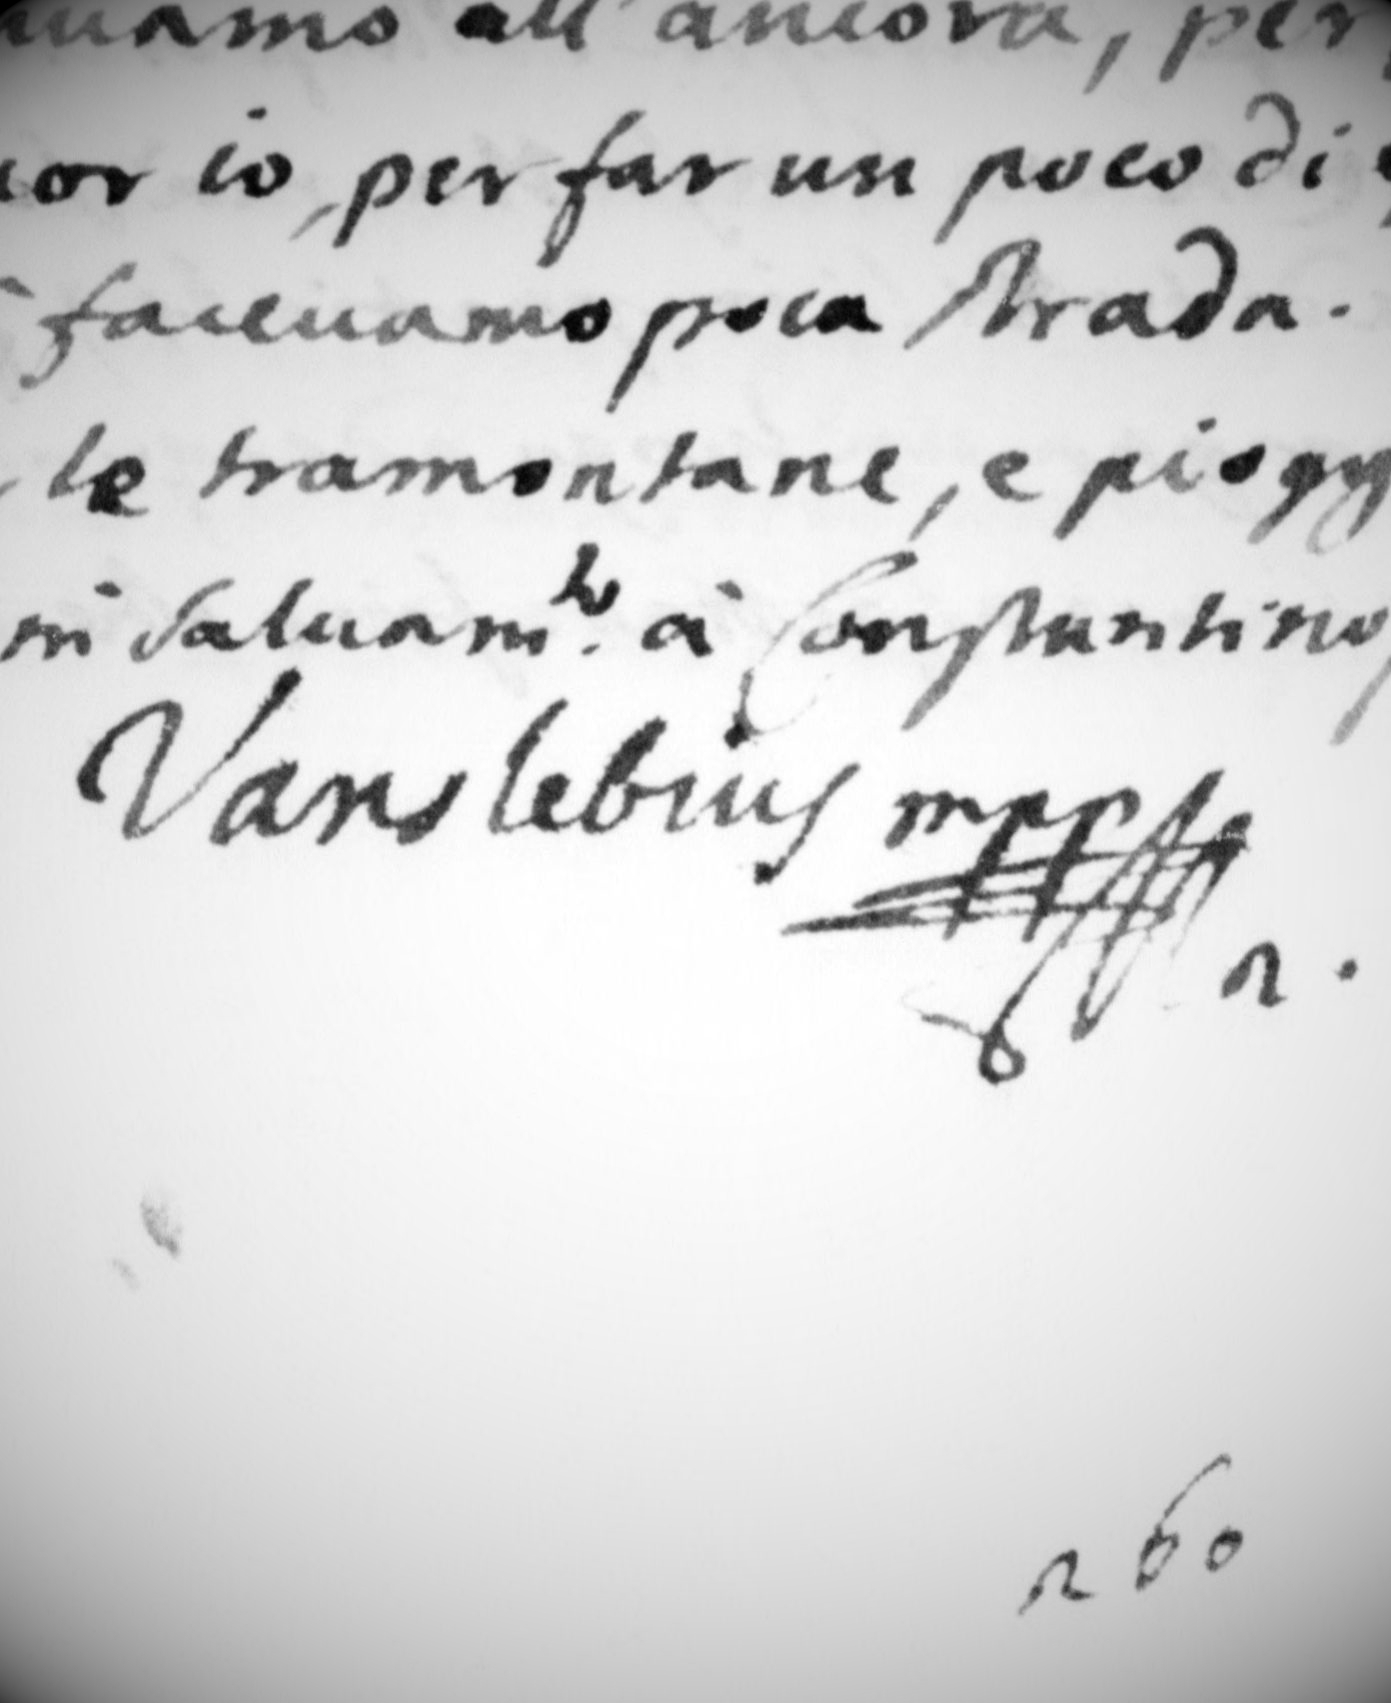 uamo all'ancora, per
cor io, per far un poco di
faceuamo poca strada.
le tramontane, e piogg
mi saluam.to à Constantinop
Vanslebius mpp
2.
260